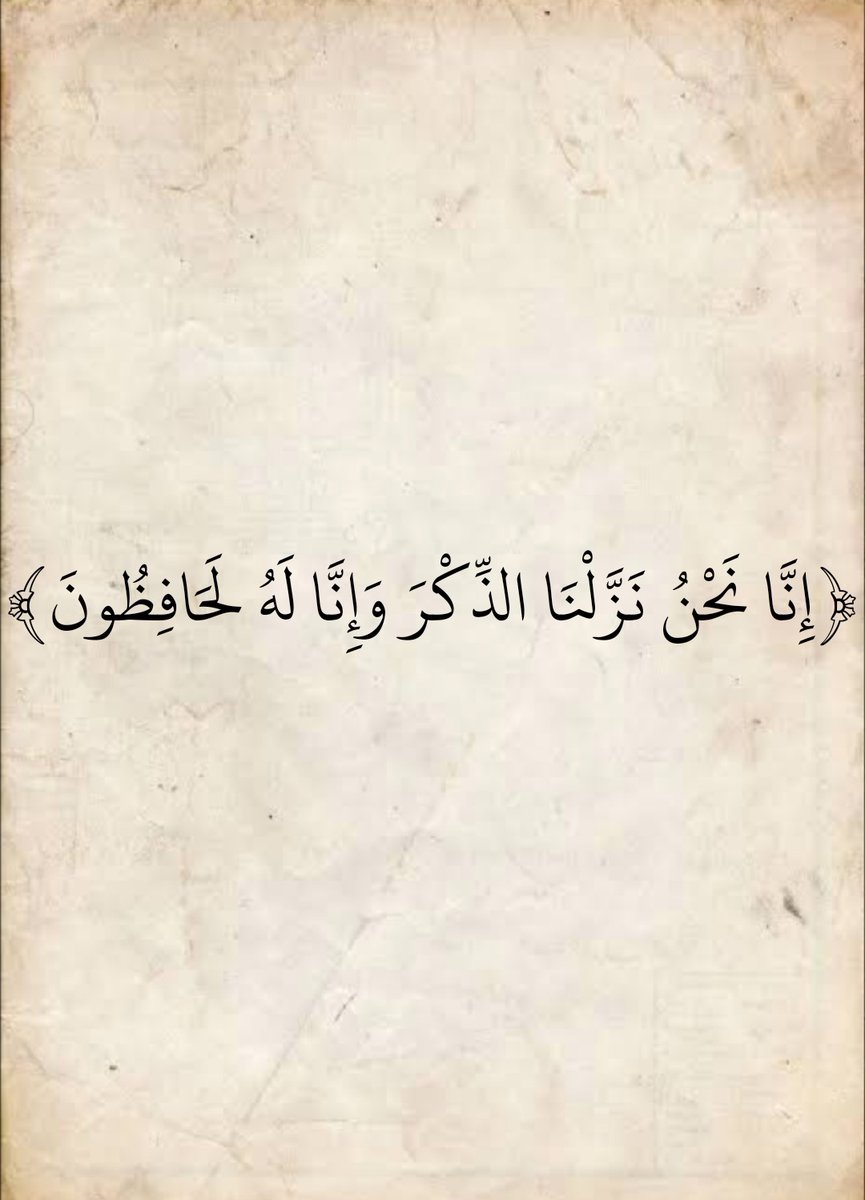 ﴿إِنَّا نَحْنُ نَزَّلْنَا الذِّكْرَ وَإِنَّا لَهُ لَحَافِظُونَ﴾